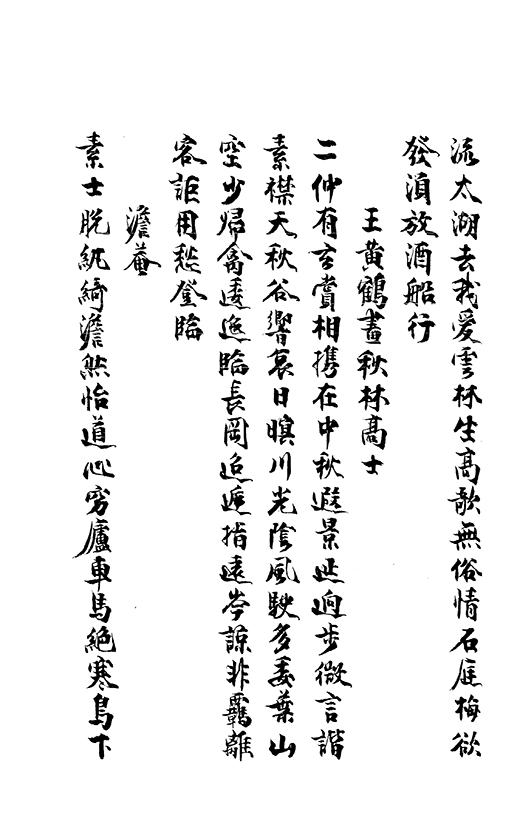 流太湖去我愛雲林生高歌無俗情石庭梅欲
發湏放酒船行
王黃鶴畫秋林高士
二仲有玄賞相携在中秋遐景延迥步微言諧
素襟天秋谷響哀日暝川光陰風駛多委葉山
空少歸禽逶迤臨長岡迢遞指遠岑諒非羈離
客詎用愁登臨
澹菴
素士脫紈綺澹然怡道心窮廬車馬絕寒鳥下